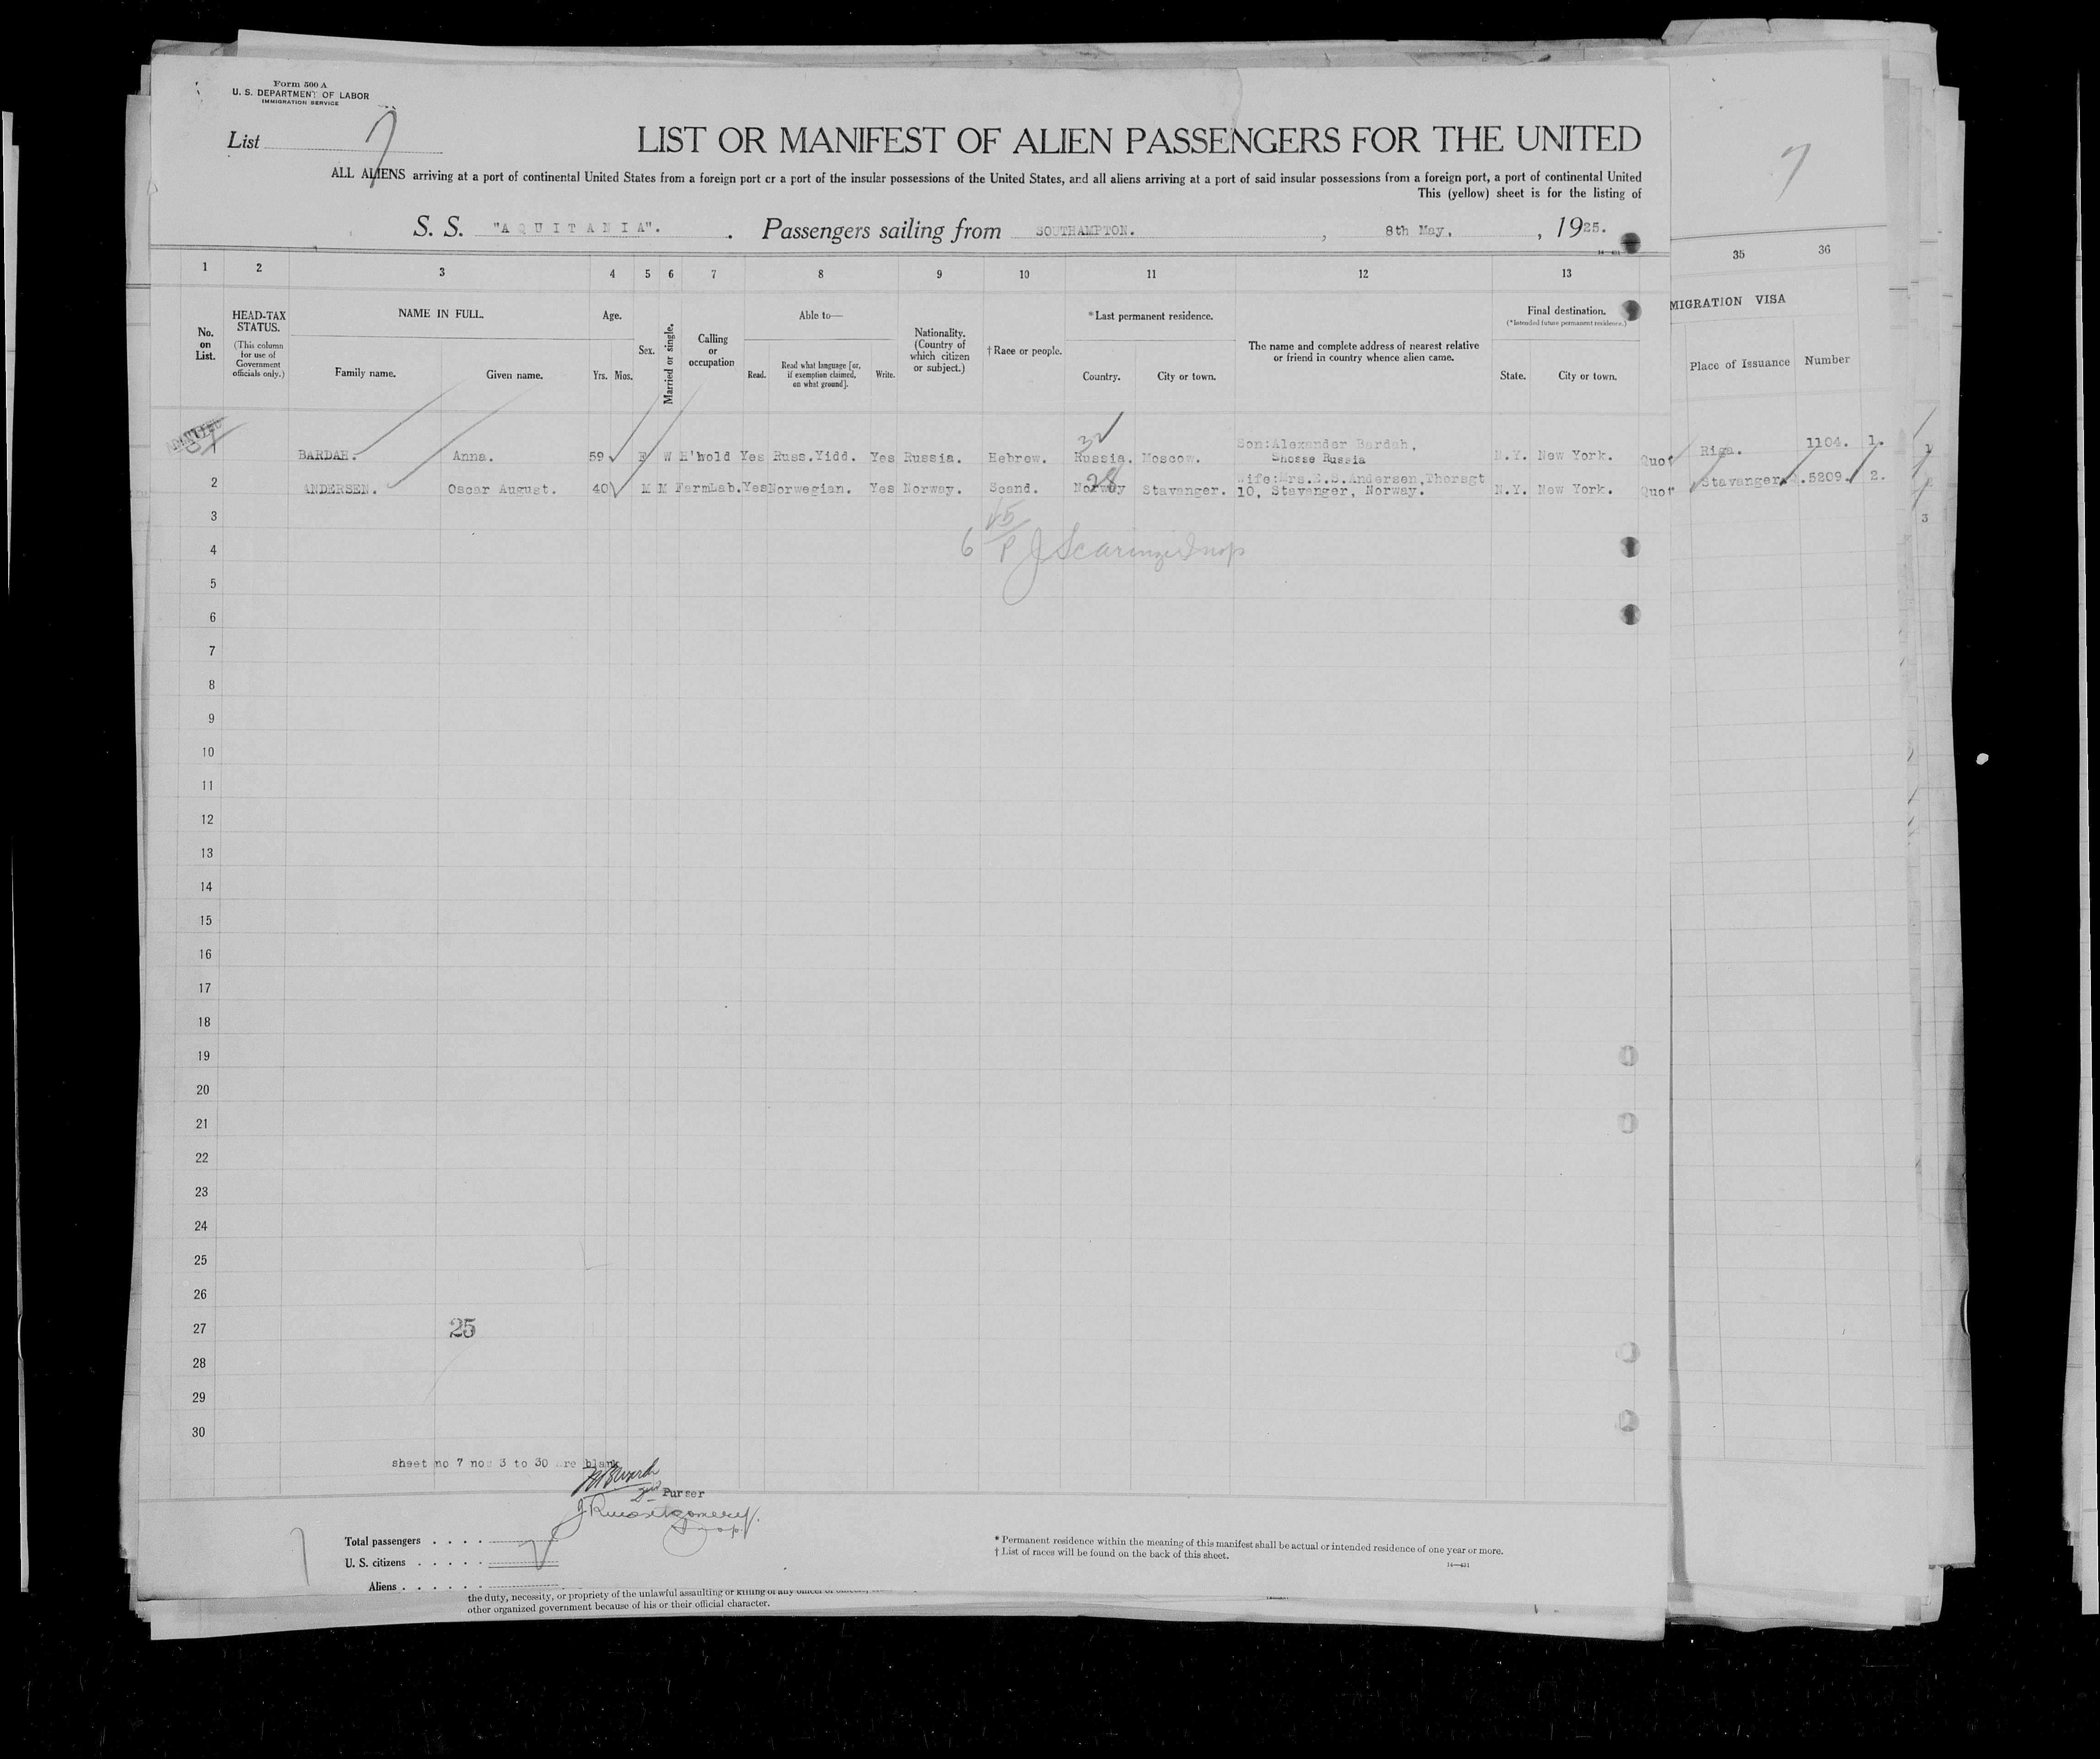 Form 500 A
U. S. DEPARTMENT OF LABOR
IMMIGRATION SERVICE
List 7
LIST OR MANIFEST OF ALIEN PASSENGERS FOR THE UNITED
ALL ALIENS arriving at a port of continental United States from a foreign port or a port of the insular possessions of the United States, and all aliens arriving at a port of said insular possessions from a foreign port, a port of continental United
This (yellow) sheet is for the listing of
7
S. S. "AQUITANIA". Passengers sailing from SOUTHAMPTON. , 8th May, , 1925.
1 2 3 4 5 6 7 8 9 10 11 12 13 35 36
No. on List.
HEAD-TAX STATUS.
(This column for use of Government officials only.)
NAME IN FULL.
Family name. Given name.
Age.
Yrs. Mos.
Sex.
Married or single.
Calling or occupation
Able to—
Read. Read what language [or, if exemption claimed, on what ground]. Write.
Nationality. (Country of which citizen or subject.)
† Race or people.
*Last permanent residence.
Country. City or town.
The name and complete address of nearest relative or friend in country whence alien came.
Final destination.
(*Intended future permanent residence.)
State. City or town.
MIGRATION VISA
Place of Issuance Number
ADMITTED
32
1 BARDAH. Anna. 59 F W H'hold Yes Russ.Yidd. Yes Russia. Hebrew. Russia. Moscow. Son:Alexander Bardah, Shosse Russia N.Y. New York. Quot Riga. 1104. 1.
28
2 ANDERSEN. Oscar August. 40 M M FarmLab. Yes Norwegian. Yes Norway. Scand. Norway Stavanger. Wife:Mrs.E.S.Andersen,Thorsgt 10, Stavanger, Norway. N.Y. New York. Quot Stavanger .5209. 2.
3 3
4
6 J Scarinzi Insp
5
6
7
8
9
10
11
12
13
14
15
16
17
18
19
20
21
22
23
24
25
26
27 25
28
29
30
sheet no 7 nos 3 to 30 are blank
Purser
J R Montgomery.
Insp.
Total passengers . . . .
U. S. citizens . . . . .
Aliens . . . . . .
* Permanent residence within the meaning of this manifest shall be actual or intended residence of one year or more.
† List of races will be found on the back of this sheet.
14—431
the duty, necessity, or propriety of the unlawful assaulting or killing of any officer or
other organized government because of his or their official character.